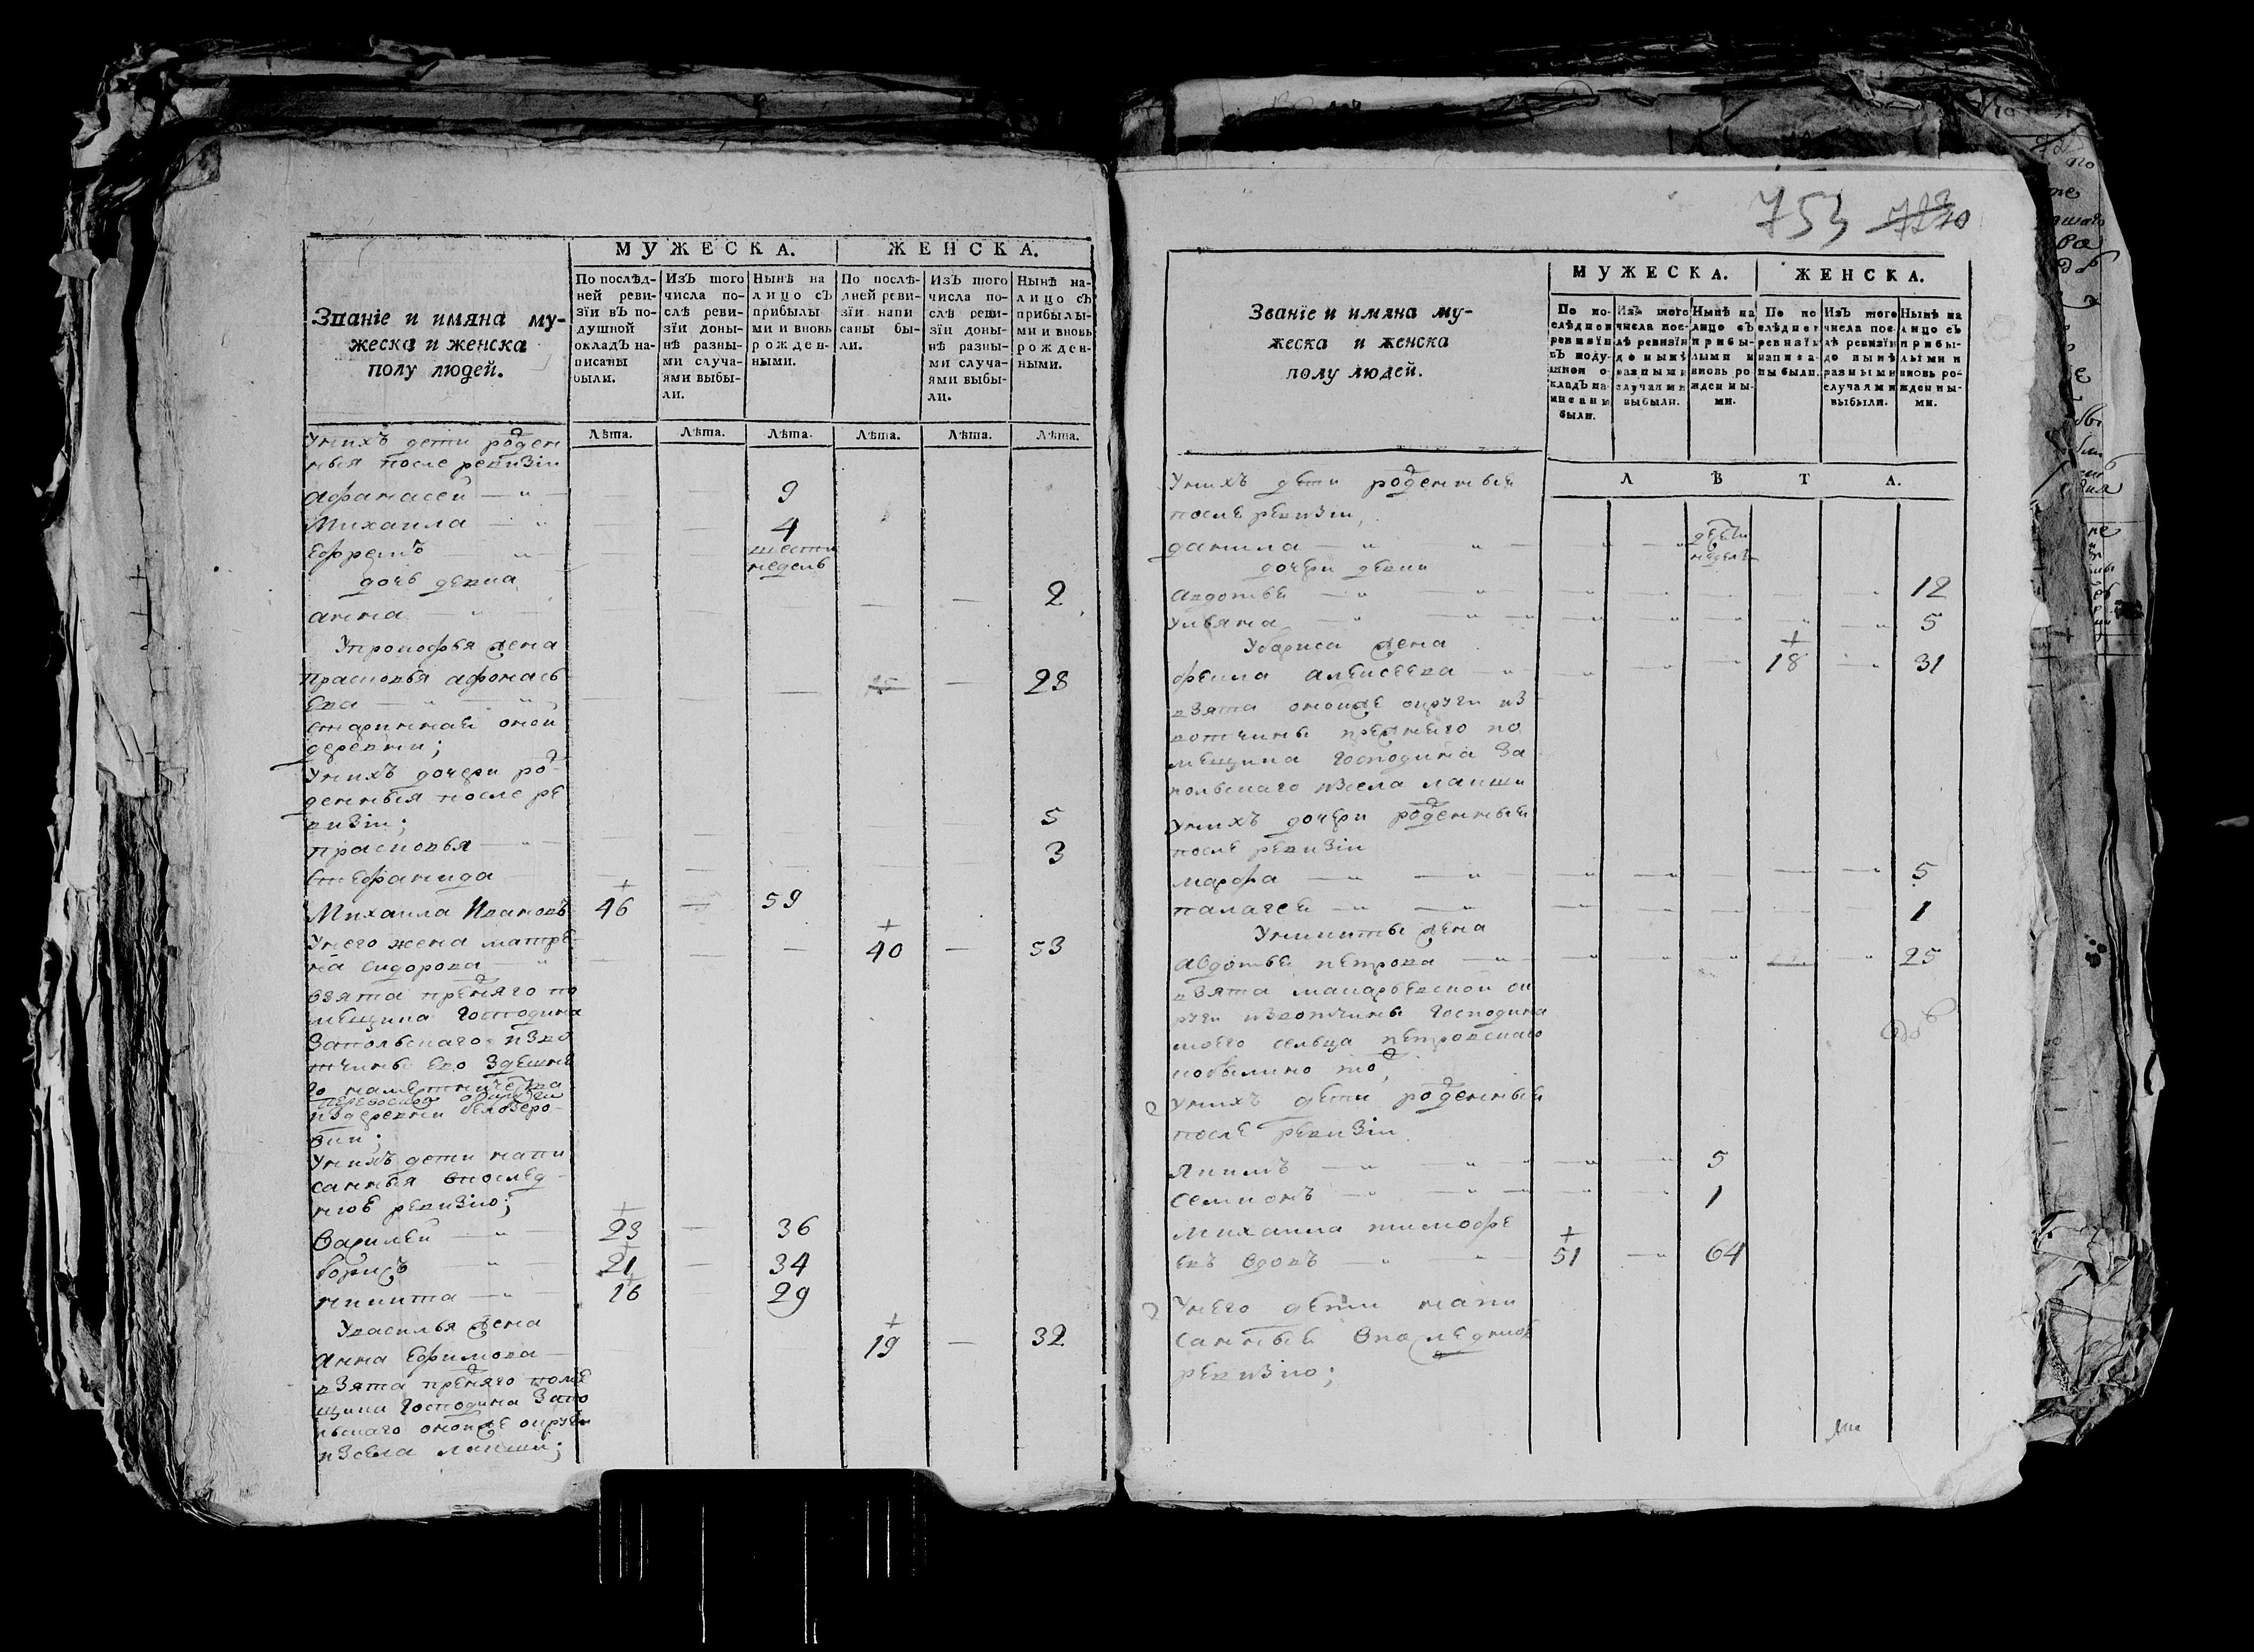 МУЖЕСКА.
ЖЕНСКА.
Званіе и имяна му-
жеска и женска
полу людей.
По послѣд-
ней реви-
зіи въ по-
душной
окладъ на-
писаны
были.
Изъ того
числа по-
слѣ реви-
зіи доны-
нѣ разны-
ми случа-
ями выбы-
ли.
Нынѣ на
лицо съ
прибылы
ми и вновь
рожден-
ными.
По послѣ-
дней реви-
зіи напи
саны бы-
ли.
Изъ того
числа по-
слѣ реви-
зіи доны-
нѣ разны-
ми случа-
ями выбы-
ли.
Нынѣ на-
лицо съ
прибылы-
ми и вновь
рожден-
ными.
Лѣта. Лѣта. Лѣта. Лѣта. Лѣта. Лѣта.
Унихъ дети роден
ныя после ревизіи
Афанасей 9
Михаила 4
Ефремъ шести недель
дочь девка
анна 2
Упрокофья жена
Прасковья афонась
ева 28
старинная оной
деревни;
Унихъ дочери ро
денныя после ре
визіи;
Прасковья 5
Стефанида 3
Михаила Ивановъ 46 59
Унего жена матре
на сидорова 40 53
взята прежняго по
мещика Господина
Запольскаго изво
тчины ево здешне
го наместничества
перевоской округи
издеревни белозеро
вки;
Унихъ дети напи
санныя впослед
нюю ревизію;
Василей 23 36
борисъ 21 34
никита 16 29
Увасилья жена
Анна Ефимова 19 32
взята прежняго поме
щика Господина Запо
льскаго оной же округи
изсела лапши;
753 729 10
Званіе и имяна му-
жеска и женска
полу людей.
МУЖЕСКА.
ЖЕНСКА.
По по-
слѣдней
ревизіи
въ поду-
шной о-
кладъ на-
писаны
были.
Изъ того
числа пос-
лѣ ревизіи
до нынѣ
разными
случаями
выбыли.
Нынѣ на
лицо съ
прибы-
лыми и
вновь ро
жденны-
ми.
По по
слѣдней
ревизіи
написа-
ны были.
Изъ того
числа пос-
лѣ ревизіи
до нынѣ
разными
случаями
выбыли.
Нынѣ на
лицо съ
прибы-
лыми и
вновь ро-
жденны-
ми.
ЛѢТА.
Унихъ дети роденные
после ревизіи,
данила недель
дочери девки
Авдотье 12
Ульяна 5
Убориса жена
фекла алексеева 18 31
взята оной же округи из
вотчины прежнего по
мещика Господина За
польскаго изсела лапши
Унихъ дочери роденные
после ревизіи
марфа 5
палагея 1
Уникиты жена
Авдотье петрова 25
взята макарьевской ок
руги извотчины Господина
моего сельца петровскаго
кобылино то,
Унихъ дети роденные
после ревизіи
Якимъ 5
Семионъ 1
Михаила тимофе
евъ вдовъ 51 64
Унего дети напи
санные впоследнюю
ревизію;